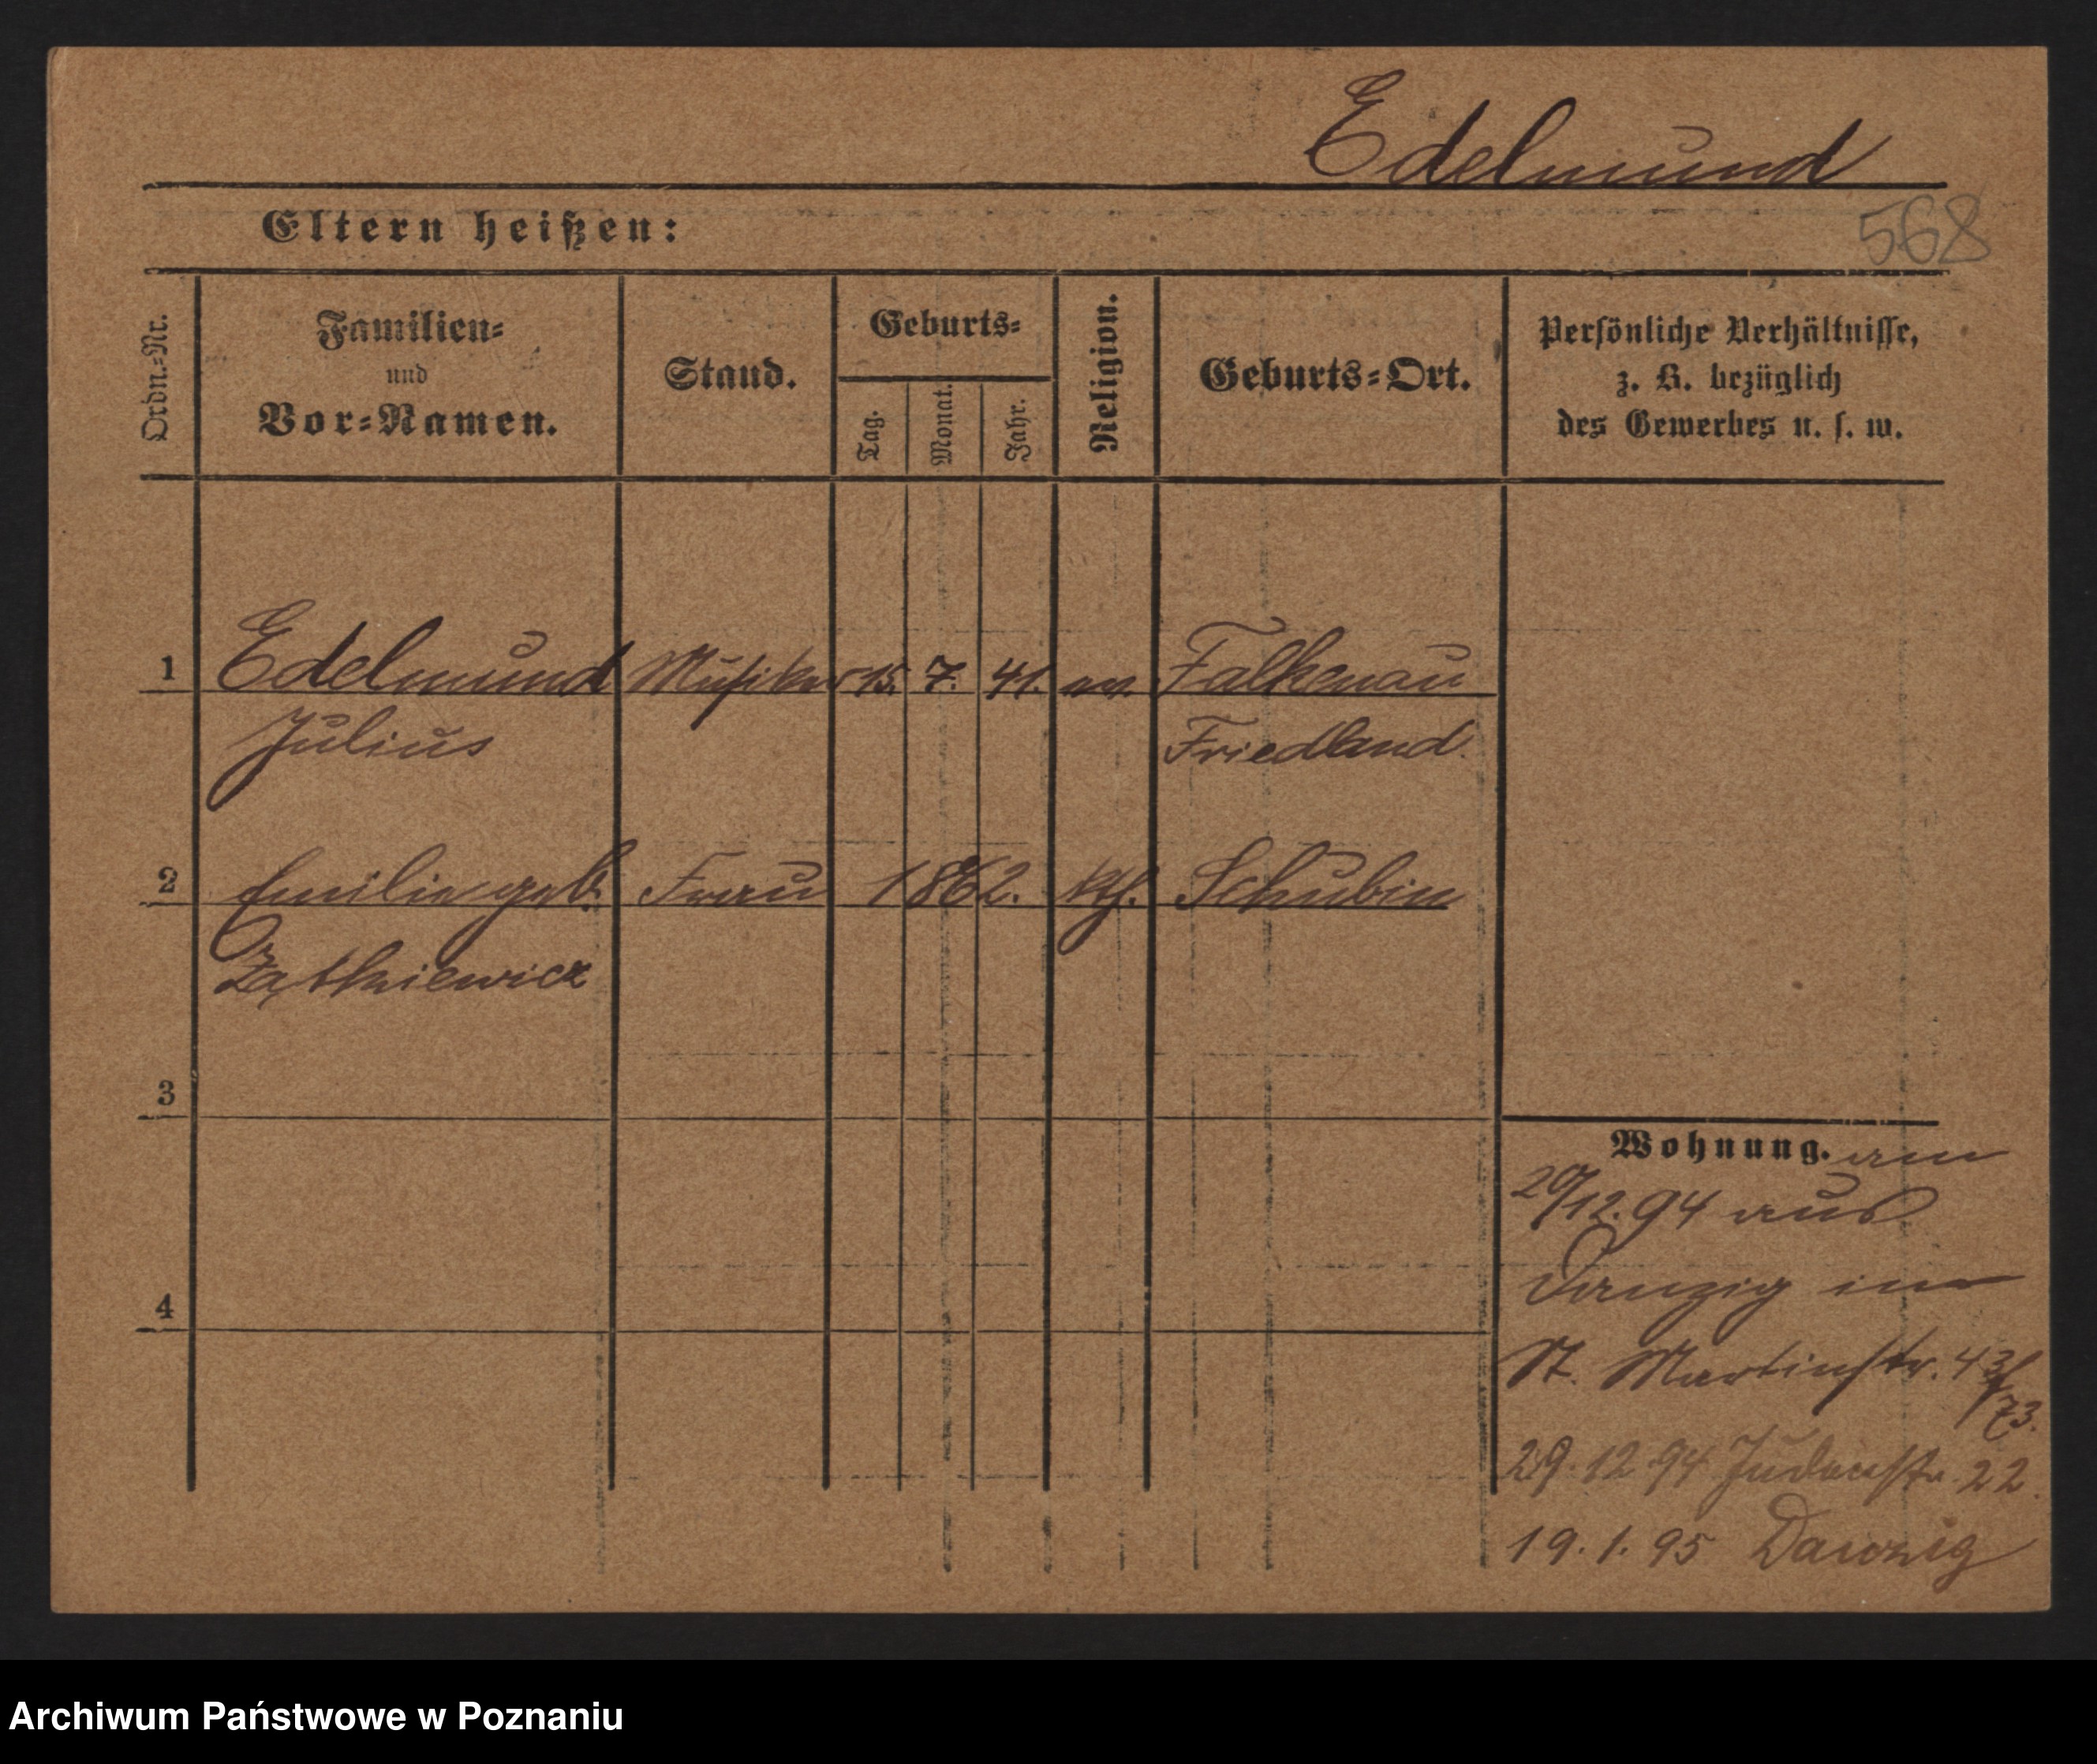 Edelmund
Eltern heißen:
568
Ordn.=Nr.
Familien=
und
Vor=Namen.
Stand.
Geburts=
Tag.
Monat.
Jahr.
Religion.
Geburts=Ort.
Persönliche Verhältnisse,
z. B. bezüglich
des Gewerbes u. s. w.
1 Edelmund Musiker 15. 7. 41. ev. Falkenau
Julius Friedland
2 Emilie geb. Frau 1862. kth. Schubin
Zątkiewicz
3
Wohnung. am
20/12.94 aus
Danzig in
4
St. Martinstr. 43/
73.
29.12.94 Judenstr. 22.
19.1.95 Danzig
Archiwum Państwowe w Poznaniu